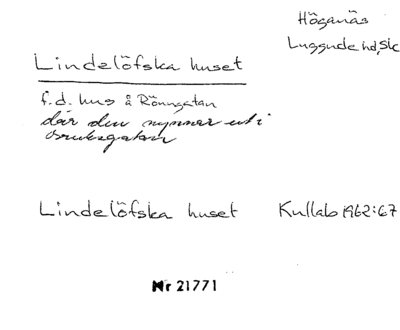 Höganäs
Luggude hd, Sk
Lindelöfska huset
f.d. hus å Rönngatan
där den mynnar ut i
Bruksgatan
Lindelöfska huset Kullab 1962:67
Nr 21771